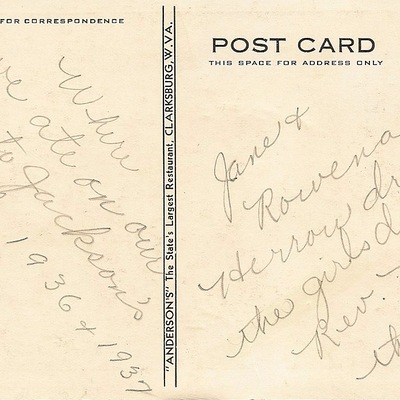 FOR CORRESPONDENCE
Where
we ate on our
to Jackson's
1936 & 1937
"ANDERSON'S" The State's Largest Restaurant, CLARKSBURG, W.VA.
POST CARD
THIS SPACE FOR ADDRESS ONLY
Jane &
Rowena
Herrow dr
the girls d
Rev.
th